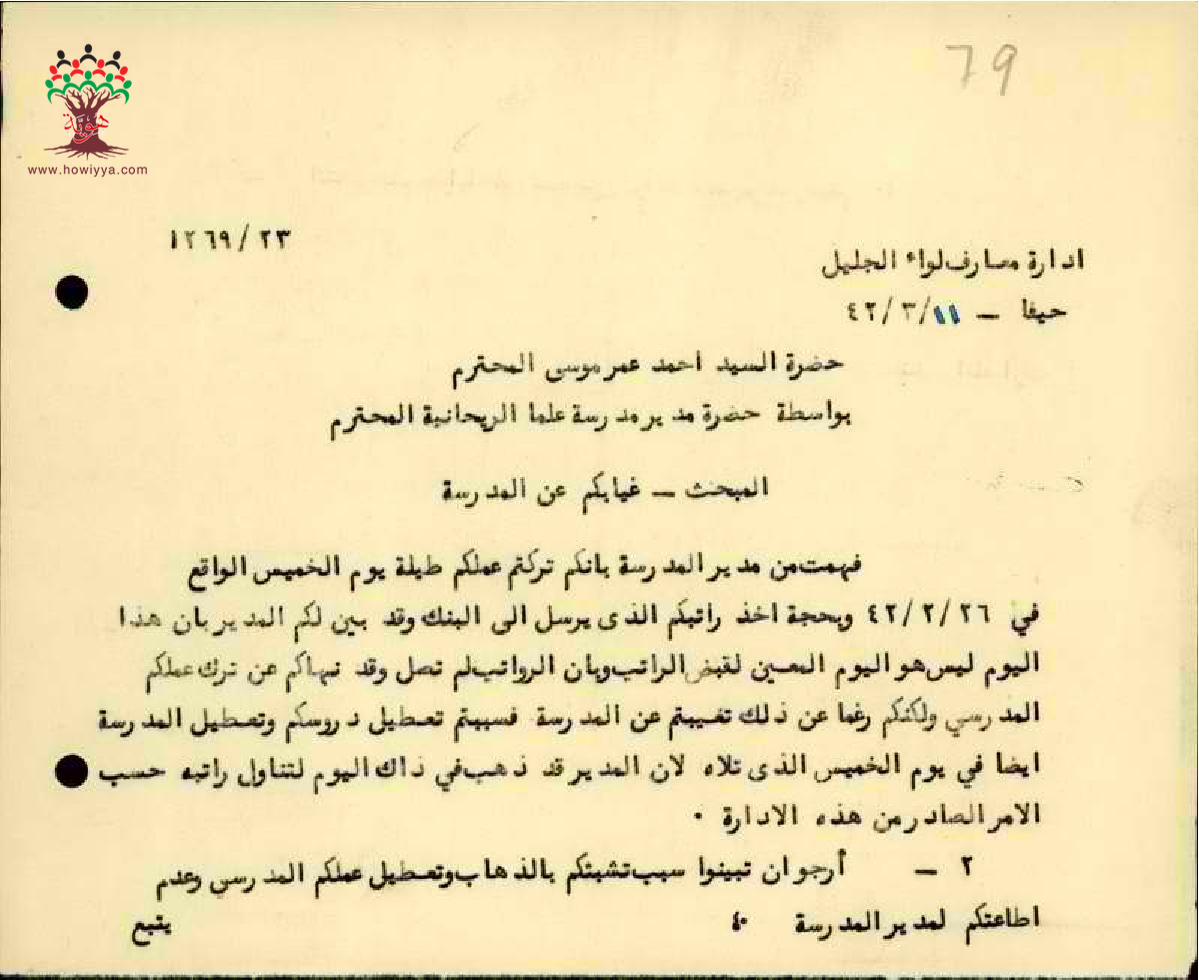 79
هوية
www.howiyya.com
١٢٦٩/٢٣
ادارة معارف لواء الجليل
حيفا - ٤٢/٣/١١
حضرة السيد احمد عمر موسى المحترم
بواسطة حضرة مدير مدرسة علما الريحانية المحترم
المبحث - غيابكم عن المدرسة
فهمت من مدير المدرسة بانكم تركتم عملكم طيلة يوم الخميس الواقع
في ٤٢/٢/٢٦ وبحجة اخذ راتبكم الذى يرسل الى البنك وقد بين لكم المدير بان هذا
اليوم ليس هو اليوم المعين لقبض الراتب وبان الرواتب لم تصل وقد نهاكم عن ترك عملكم
المدرسي ولكنكم رغما عن ذلك تغيبتم عن المدرسة فسببتم تعطيل دروسكم وتعطيل المدرسة
ايضا في يوم الخميس الذى تلاه لان المدير قد ذهب في ذاك اليوم لتناول راتبه حسب
الامر الصادر من هذه الادارة ٠
٢ - أرجو ان تبينوا سبب تشبثكم بالذهاب وتعطيل عملكم المدرسي وعدم
اطاعتكم لمدير المدرسة ٤٠ يتبع